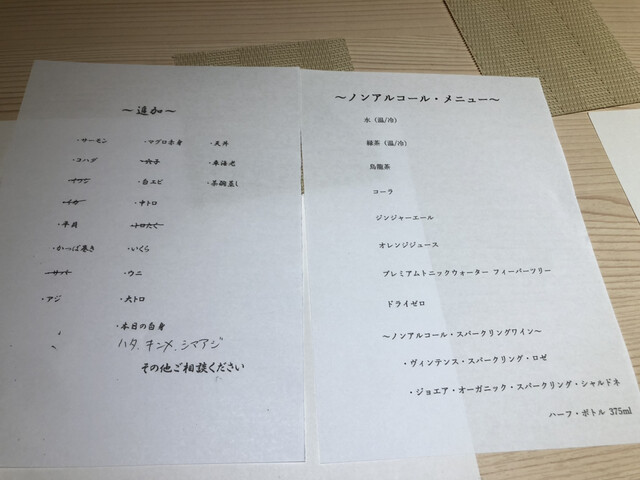 ～追加～
・サーモン ・マグロ赤身 ・天丼
・コハダ ・穴子 ・車海老
・イワシ ・白エビ ・茶碗蒸し
・イカ ・中トロ
・平貝 ・トロたく
・かっぱ巻き ・いくら
・サヨリ ・ウニ
・アジ ・大トロ
・本日の白身
ハタ、キンメ、シマアジ
その他ご相談ください
～ノンアルコール・メニュー～
水（温/冷）
緑茶（温/冷）
烏龍茶
コーラ
ジンジャーエール
オレンジジュース
プレミアムトニックウォーター フィーバーツリー
ドライゼロ
～ノンアルコール・スパークリングワイン～
・ヴィンテンス・スパークリング・ロゼ
・ジョエア・オーガニック・スパークリング・シャルドネ
ハーフ・ボトル 375ml